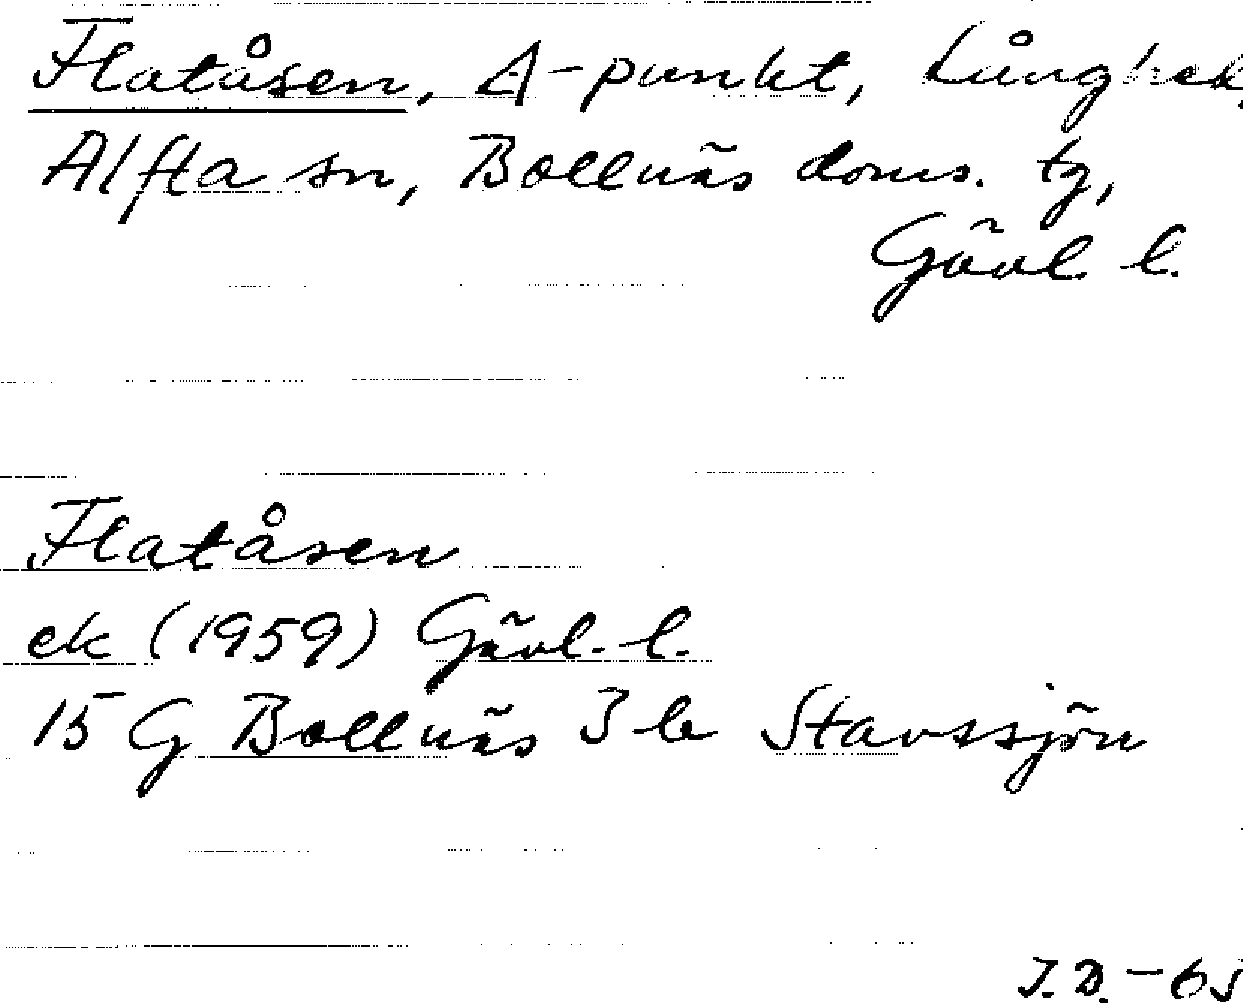 Flatåsen, A-punkt, Långhed,
Alfta sn, Bollnäs doms. tg,
Gävl. l.
Flatåsen
ek (1959) Gävl. l.
15 G Bollnäs 3 b Stavssjön
J.D. – 65